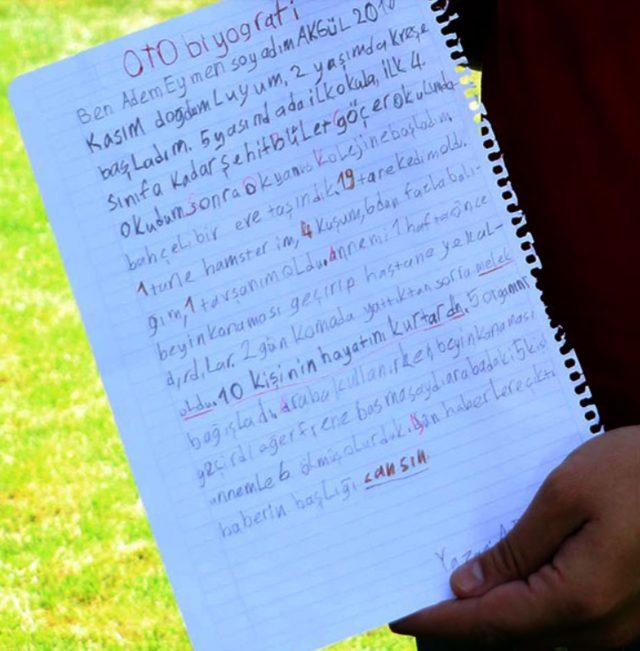 OTO biyografi
Ben Adem Eymen soyadım AKGÜL 2010
Kasım doğdumLuyum, 2 yaşımda kreşe
başladım. 5 yasındada ilkokula, ilk 4.
sınıfa kadar şehitBÜLeT göçer okulunda
okudum. Sonra Okyanus Kolejine başladım,
bahçeli bir eve taşındık. 19 tane kedim oldı.
1 tane hamster im, 4 kuşum, 6 dan fazla balı-
ğım, 1 tavşanım oldu. Annemi 1 hafta önce
beyin kanaması geçirip hastane ye kal-
dırdılar. 2 gün komada yattıktan sorra melek
oldu. 10 kişinin hayatını kurtardı. 5 organını
bağışladı. Araba kullanırken beyin kanaması
geçirdi eğer frene basmasaydı arabadaki 5 kişi
annemle 6 ölmüş olurduk. Dün haberlere çıktı
haberin başlığı cansın